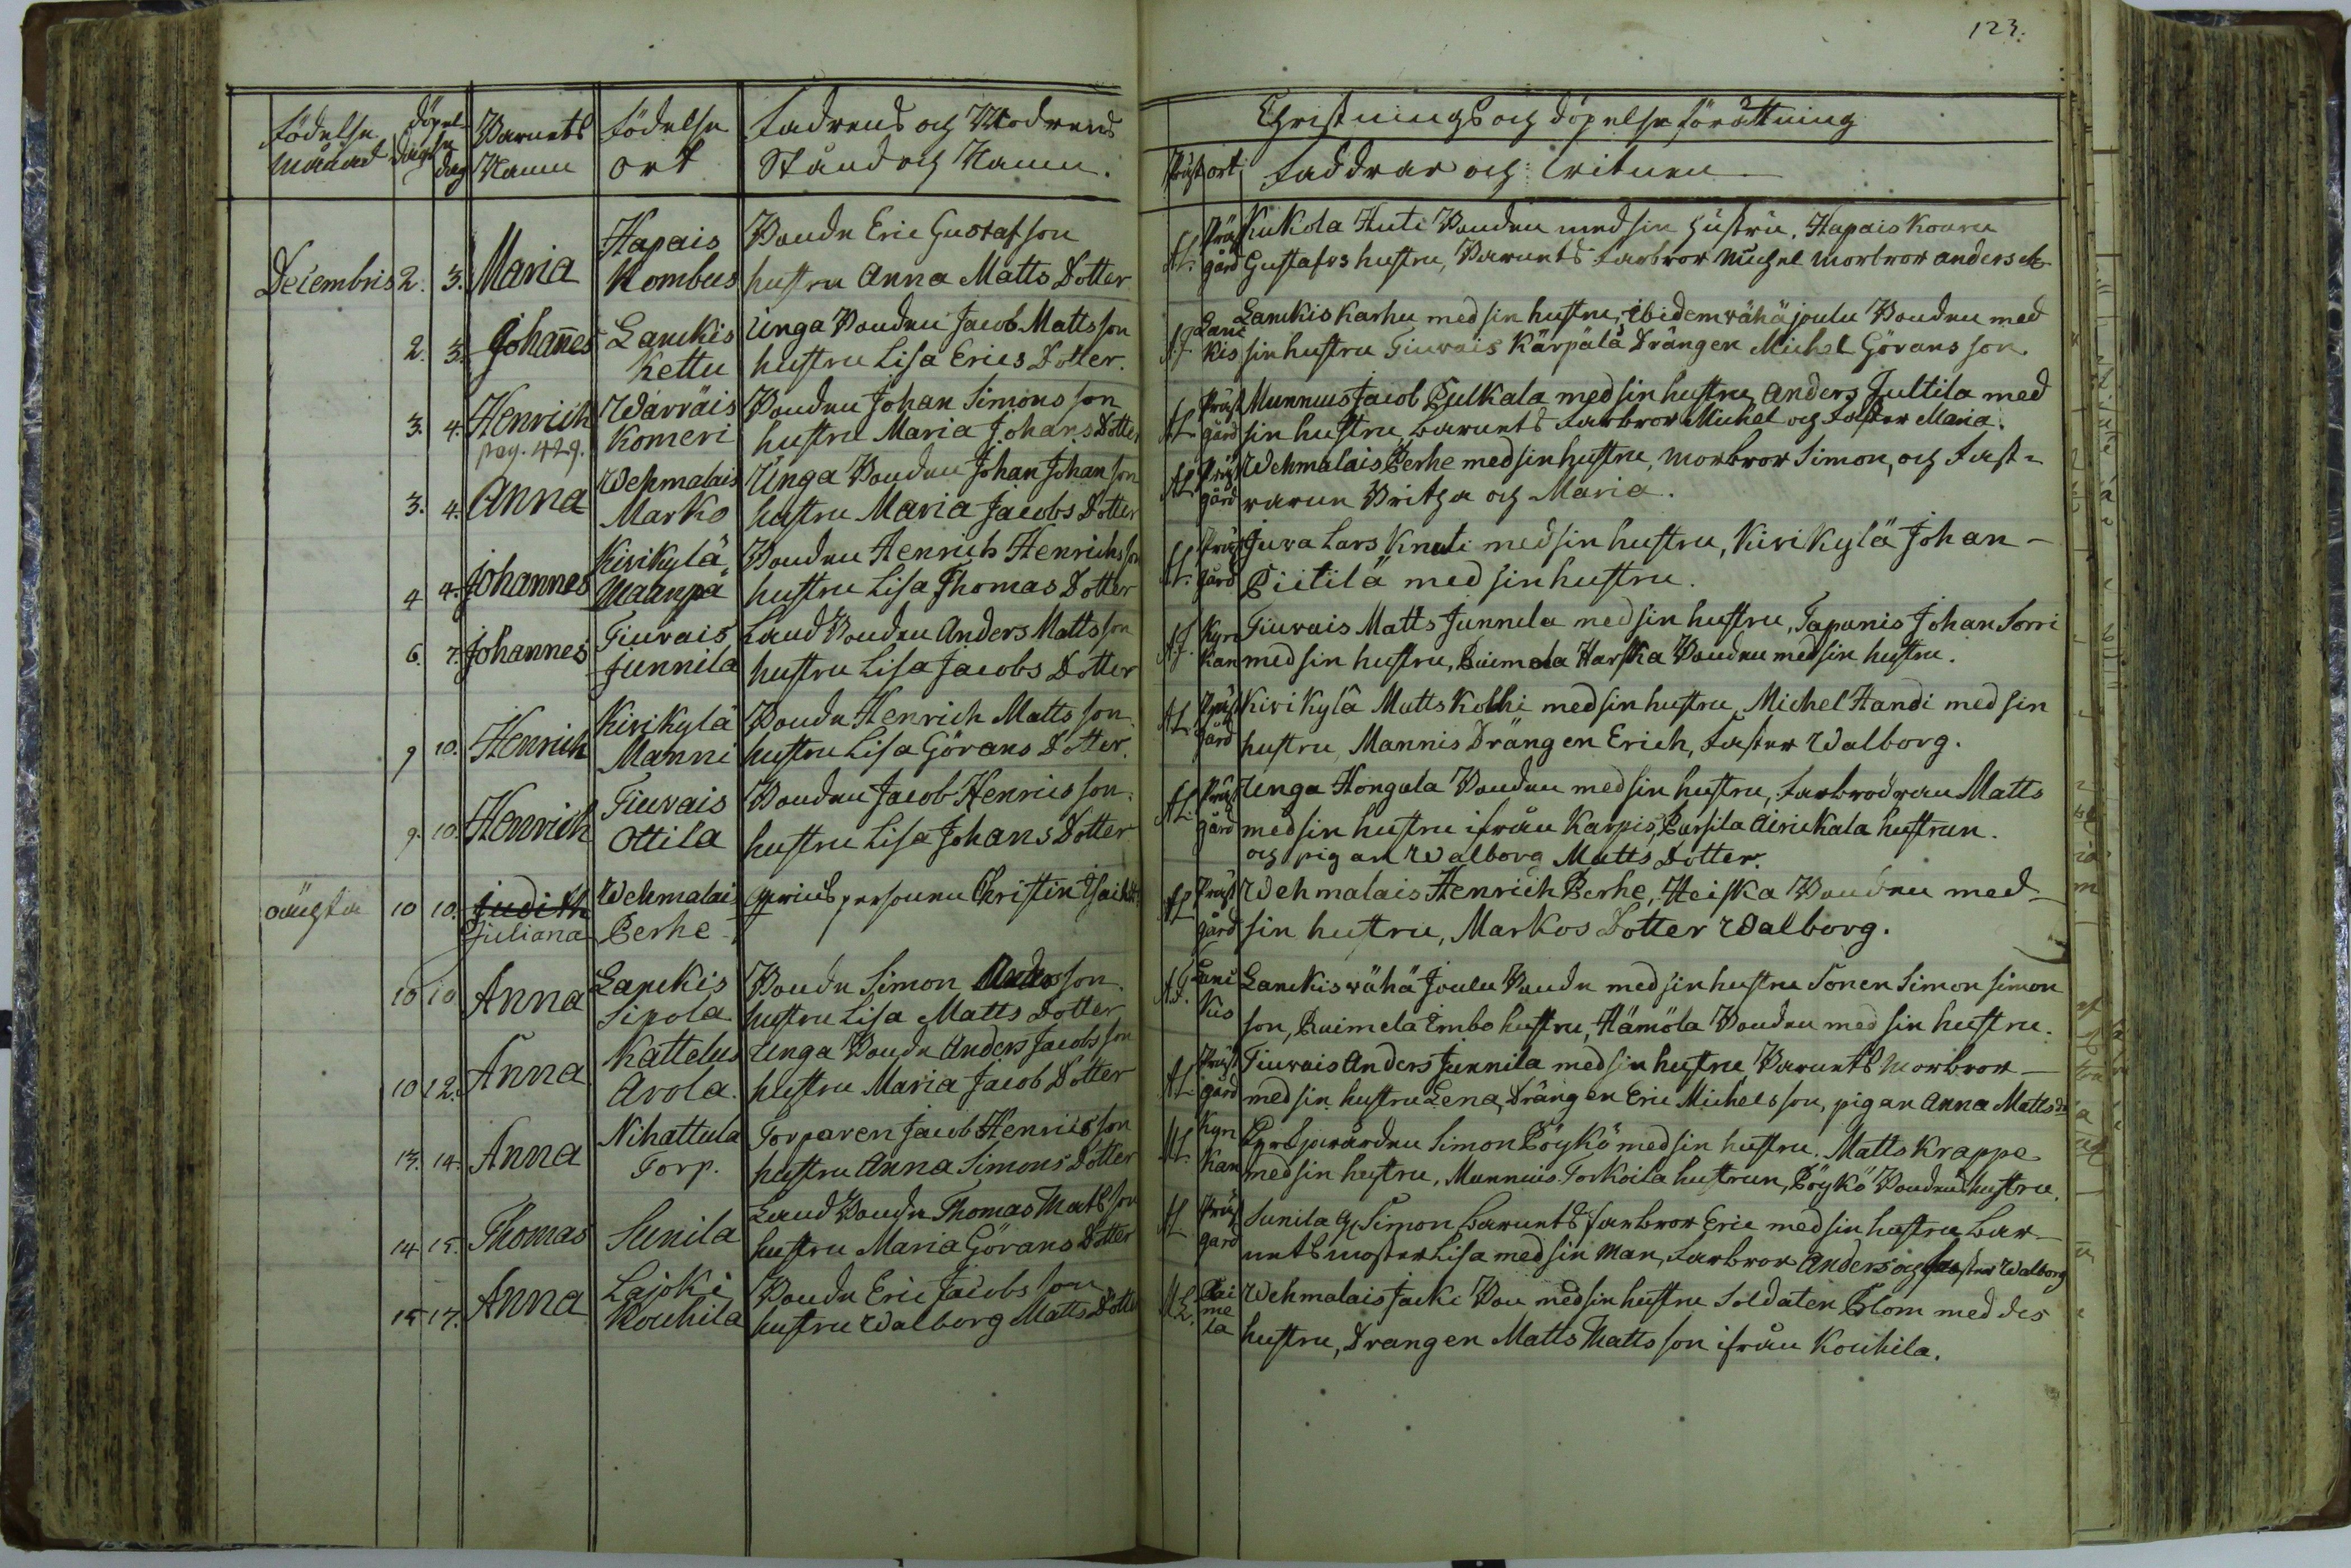 123.
Födelse månad
dag
döpelse dag
Barnets Namn
födelse ort
Fadrens och Modrens Stånd och Namn.
Christnings och döpelse förrättning
Präst
ort
Faddrar och: witnen
Decembris 2. 3. Maria Hapais Kombus Bonde Eric Gustafson
hustru Anna Matts Dotter
Präst gård Kukola Huti Bonden med sin hustru, Hapais
Gustafs hustru, Barnets Farbror Michel Morbror anders
2. 3. Johan̄es Lanckis Kettu Unga Bonden Jacob Mattsson
hustru Lisa Erics Dotter.
A.J. Lanc kis Lanckis Karhu med sin hustru, ibidem wähä joulu Bonden med
sin hustru Tiuvais Kärpälä Drängen Michel Görans son.
3. 4. Henrich pag. 429. Warväis Komeri Bonden Johan Simons son
hustru Maria Johans Dotter
AL. Präst gård Munnuis Jacob Pulkala med sin hustru, Anders Jultila med
sin hustru, barnets Farbror Michel och Faster Maria.
3. 4. Anna Wehmalais Marko Unga Bonden Johan Johanson
hustru Maria Jacobs Dotter
AL. Präst gård Wehmalais Perhe med sin hustru, morbror Simon, och Fast-
rarne Britha och Maria.
4 4. Johannes Kirikylä Maanpä Bonden Henrich Henrichsson
hustru Lisa Thomas Dotter
AL. Präst gård Juva Lars Knuti med sin hustru, Kirikylä Johan -
Piitilä med sin hustru.
6. 7. Johannes Tiuvais Junnila Land Bonden Anders Mattsson
hustru Lisa Jacobs Dotter
A.J. Kyrckan Tiuvais Matts Junnila med sin hustru, Tapanis Johan Sorri
med sin hustru, Raimela Harska Bonden med sin hustru.
9 10. Henrich Kirikylä Manni Bonde Henrich Matts son
hustru Lisa Görans Dotter.
AL. Präst gård Kirikylä Matts Kolhi med sin hustru, Michel Handi med sin
hustru, Mannis Drängen Erich, Faster Walborg.
9. 10. Henrich Tiuvais Ottila Bonden Jacob Henrics son.
hustru Lisa Johans Dotter
AL. Präst gård Unga Hongola Bonden med sin hustru, Farbrodren Matts
med sin hustru ifrån Karpis, Pursila Airickala hustrun.
och pigan Walborg Matts Dotter.
oäugta 10 10. Judith Juliana Wehmalais Perhe qwins personen Christin
AL. Präst gård Wehmalais Henrich Perhe, Heiska Bonden med
sin hustru, Markos Dotter Walborg.
10 10 Anna Lanckis Sipola Bonde Simon Andersson.
hustru Lisa Matts Dotter
A.J. Lanc kis Lanckis wähä Joulu Bonde med sin hustru Sonen Simon Simon
son, Raimela Embo hustru, Hämöla Bonden med sin hustru.
10 12. Anna Kattelus Arola. Unga Bonde Anders Jacobsson
hustru Maria Jacob Dotter
AL. Präst gård Tiuvais Anders Junnila med sin hustru Barnets Morbror
med sin hustru Lena, Drängen Eric Michelsson, pigan Anna Matts
13. 14. Anna Nihattula Torp. Torparen Jacob Henricsson
hustru Anna Simons Dotter
AL. Kyrckan Simon Böykö med sin hustru. Matts Krappe
med sin hustru, Munnuis Torkoila hustrun, Böykö Bondens hustru.
14 15. Thomas Sunila Land Bonde Thomas Matsson
hustru Maria Görans Dotter
AL. Präst gård Sunila Simon barnets farbror Eric med sin hustru, bar-
nets moster Lisa med sin man, Farbror Anders och faster Walborg
15 17. Anna Lajoki Kouhila Bonde Eric Jacobs son
hustru Walborg Matts Dotter
AL. Rai me la Wehmalais Jacki Bon med sin hustru Soldaten Blom med des
hustru, Drangen Matts Matts son ifrån Kouhila.